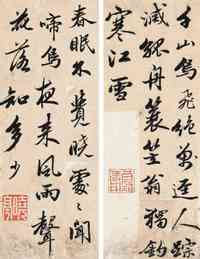 千山鳥飛絕萬逕人踪
滅孤舟簑笠翁獨釣
寒江雪
春眠不覺曉處〻聞
啼鳥夜來風雨聲
花落知多少